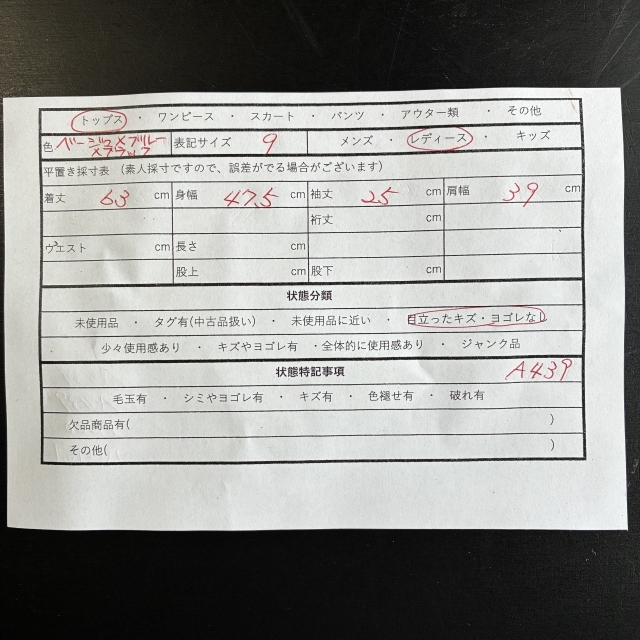 トップス ・ ワンピース ・ スカート ・ パンツ ・ アウター類 ・ その他
色 ベージュ×ブルー×ブラック 表記サイズ 9 メンズ ・ レディース ・ キッズ
平置き採寸表 (素人採寸ですので、誤差がでる場合がございます)
着丈 63 cm 身幅 47.5 cm 袖丈 25 cm 肩幅 39 cm
裄丈 cm
ウエスト cm 長さ cm
股上 cm 股下 cm
状態分類
未使用品 ・ タグ有(中古品扱い) ・ 未使用品に近い ・ 目立ったキズ・ヨゴレなし
少々使用感あり ・ キズやヨゴレ有 ・全体的に使用感あり ・ ジャンク品
状態特記事項 A439
毛玉有 ・ シミやヨゴレ有 ・ キズ有 ・ 色褪せ有 ・ 破れ有
欠品商品有( )
その他( )